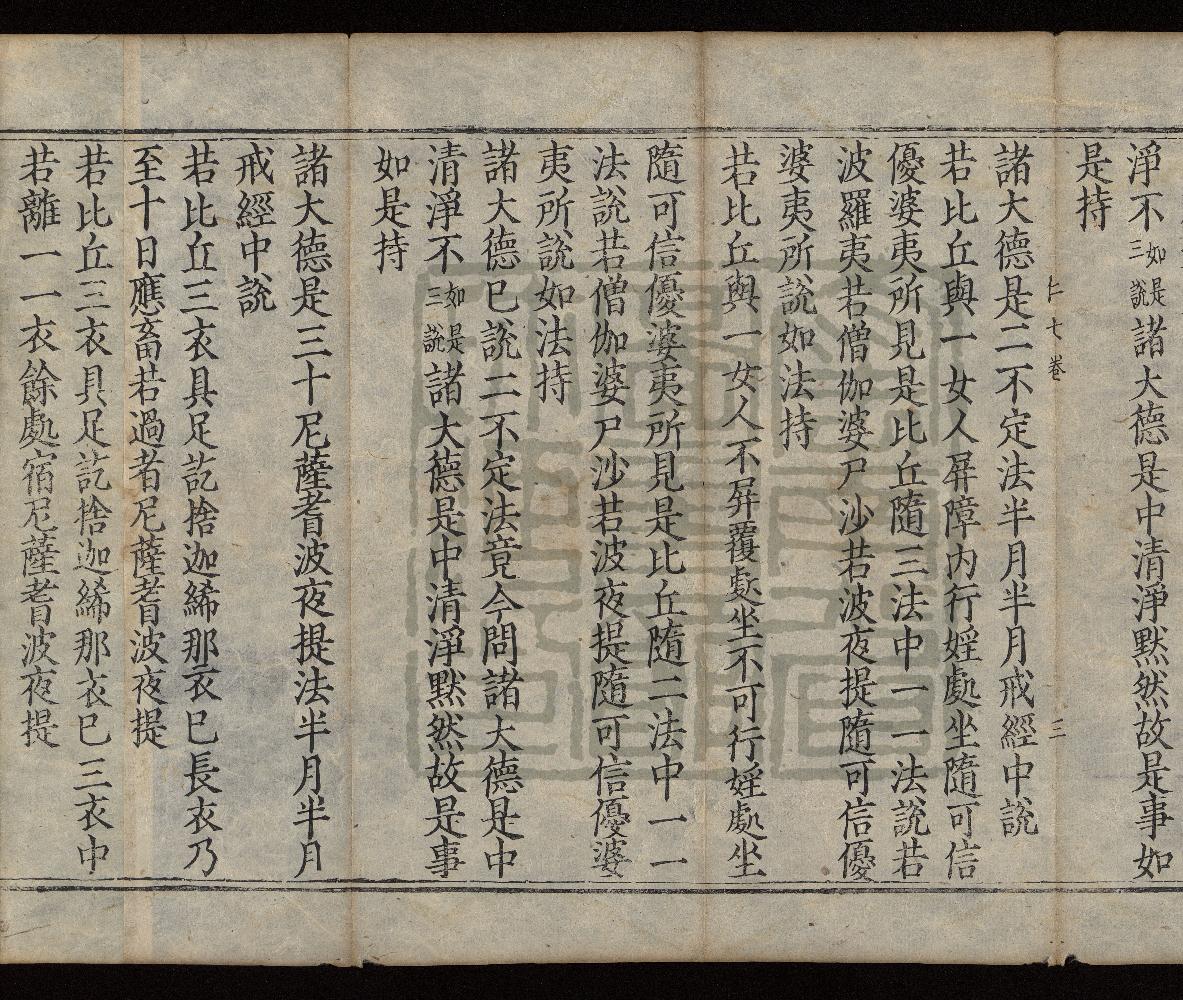 淨不如是三說諸大德是中清淨默然故是事如
是持
仁七卷 三
諸大德是二不定法半月半月戒經中說
若比丘與一女人屏障内行婬處坐隨可信
優婆夷所見是比丘隨三法中一一法說若
波羅夷若僧伽婆尸沙若波夜提隨可信優
婆夷所說如法持
若比丘與一女人不屏覆處坐不可行婬處坐
隨可信優婆夷所見是比丘隨二法中一一
法說若僧伽婆尸沙若波夜提隨可信優婆
夷所說如法持
諸大德已說二不定法竟今問諸大德是中
清淨不如是三說諸大德是中清淨默然故是事
如是持
諸大德是三十尼薩耆波夜提法半月半月
戒經中說
若比丘三衣具足訖捨迦絺那衣已長衣乃
至十日應畜若過者尼薩耆波夜提
若比丘三衣具足訖捨迦絺那衣已三衣中
若離一一衣餘處宿尼薩耆波夜提